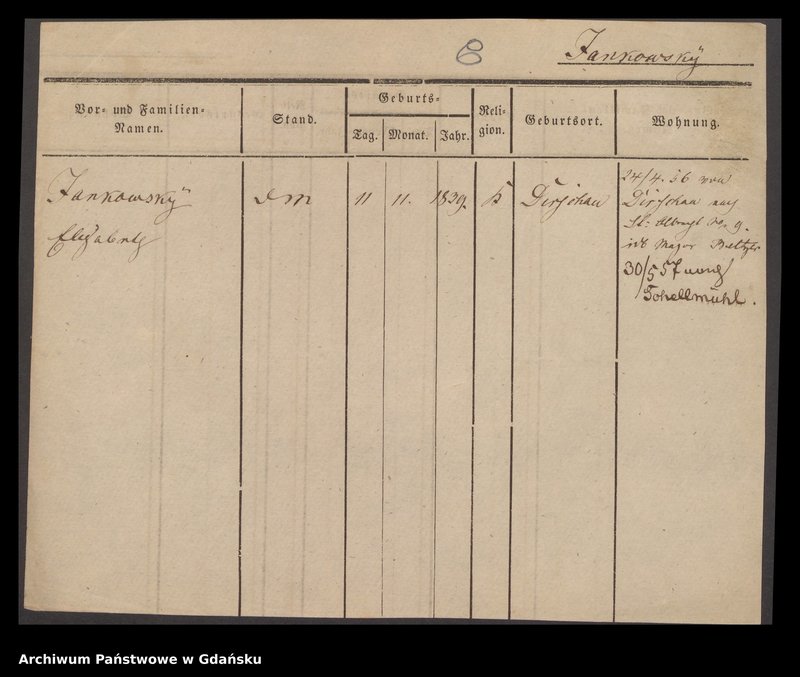 Jankowskÿ
Vor- und Familien-
Namen.
Stand.
Geburts-
Tag.
Monat.
Jahr.
Reli-
gion.
Geburtsort.
Wohnung.
Jankowskÿ
Elisabeth
dm
11
11.
1839.
k
Dirschau
24/4. 56 von
Dirschau nach
St. Albrecht No 9.
Major
30/5 57 nach
Schellmühl.
Archiwum Państwowe w Gdańsku